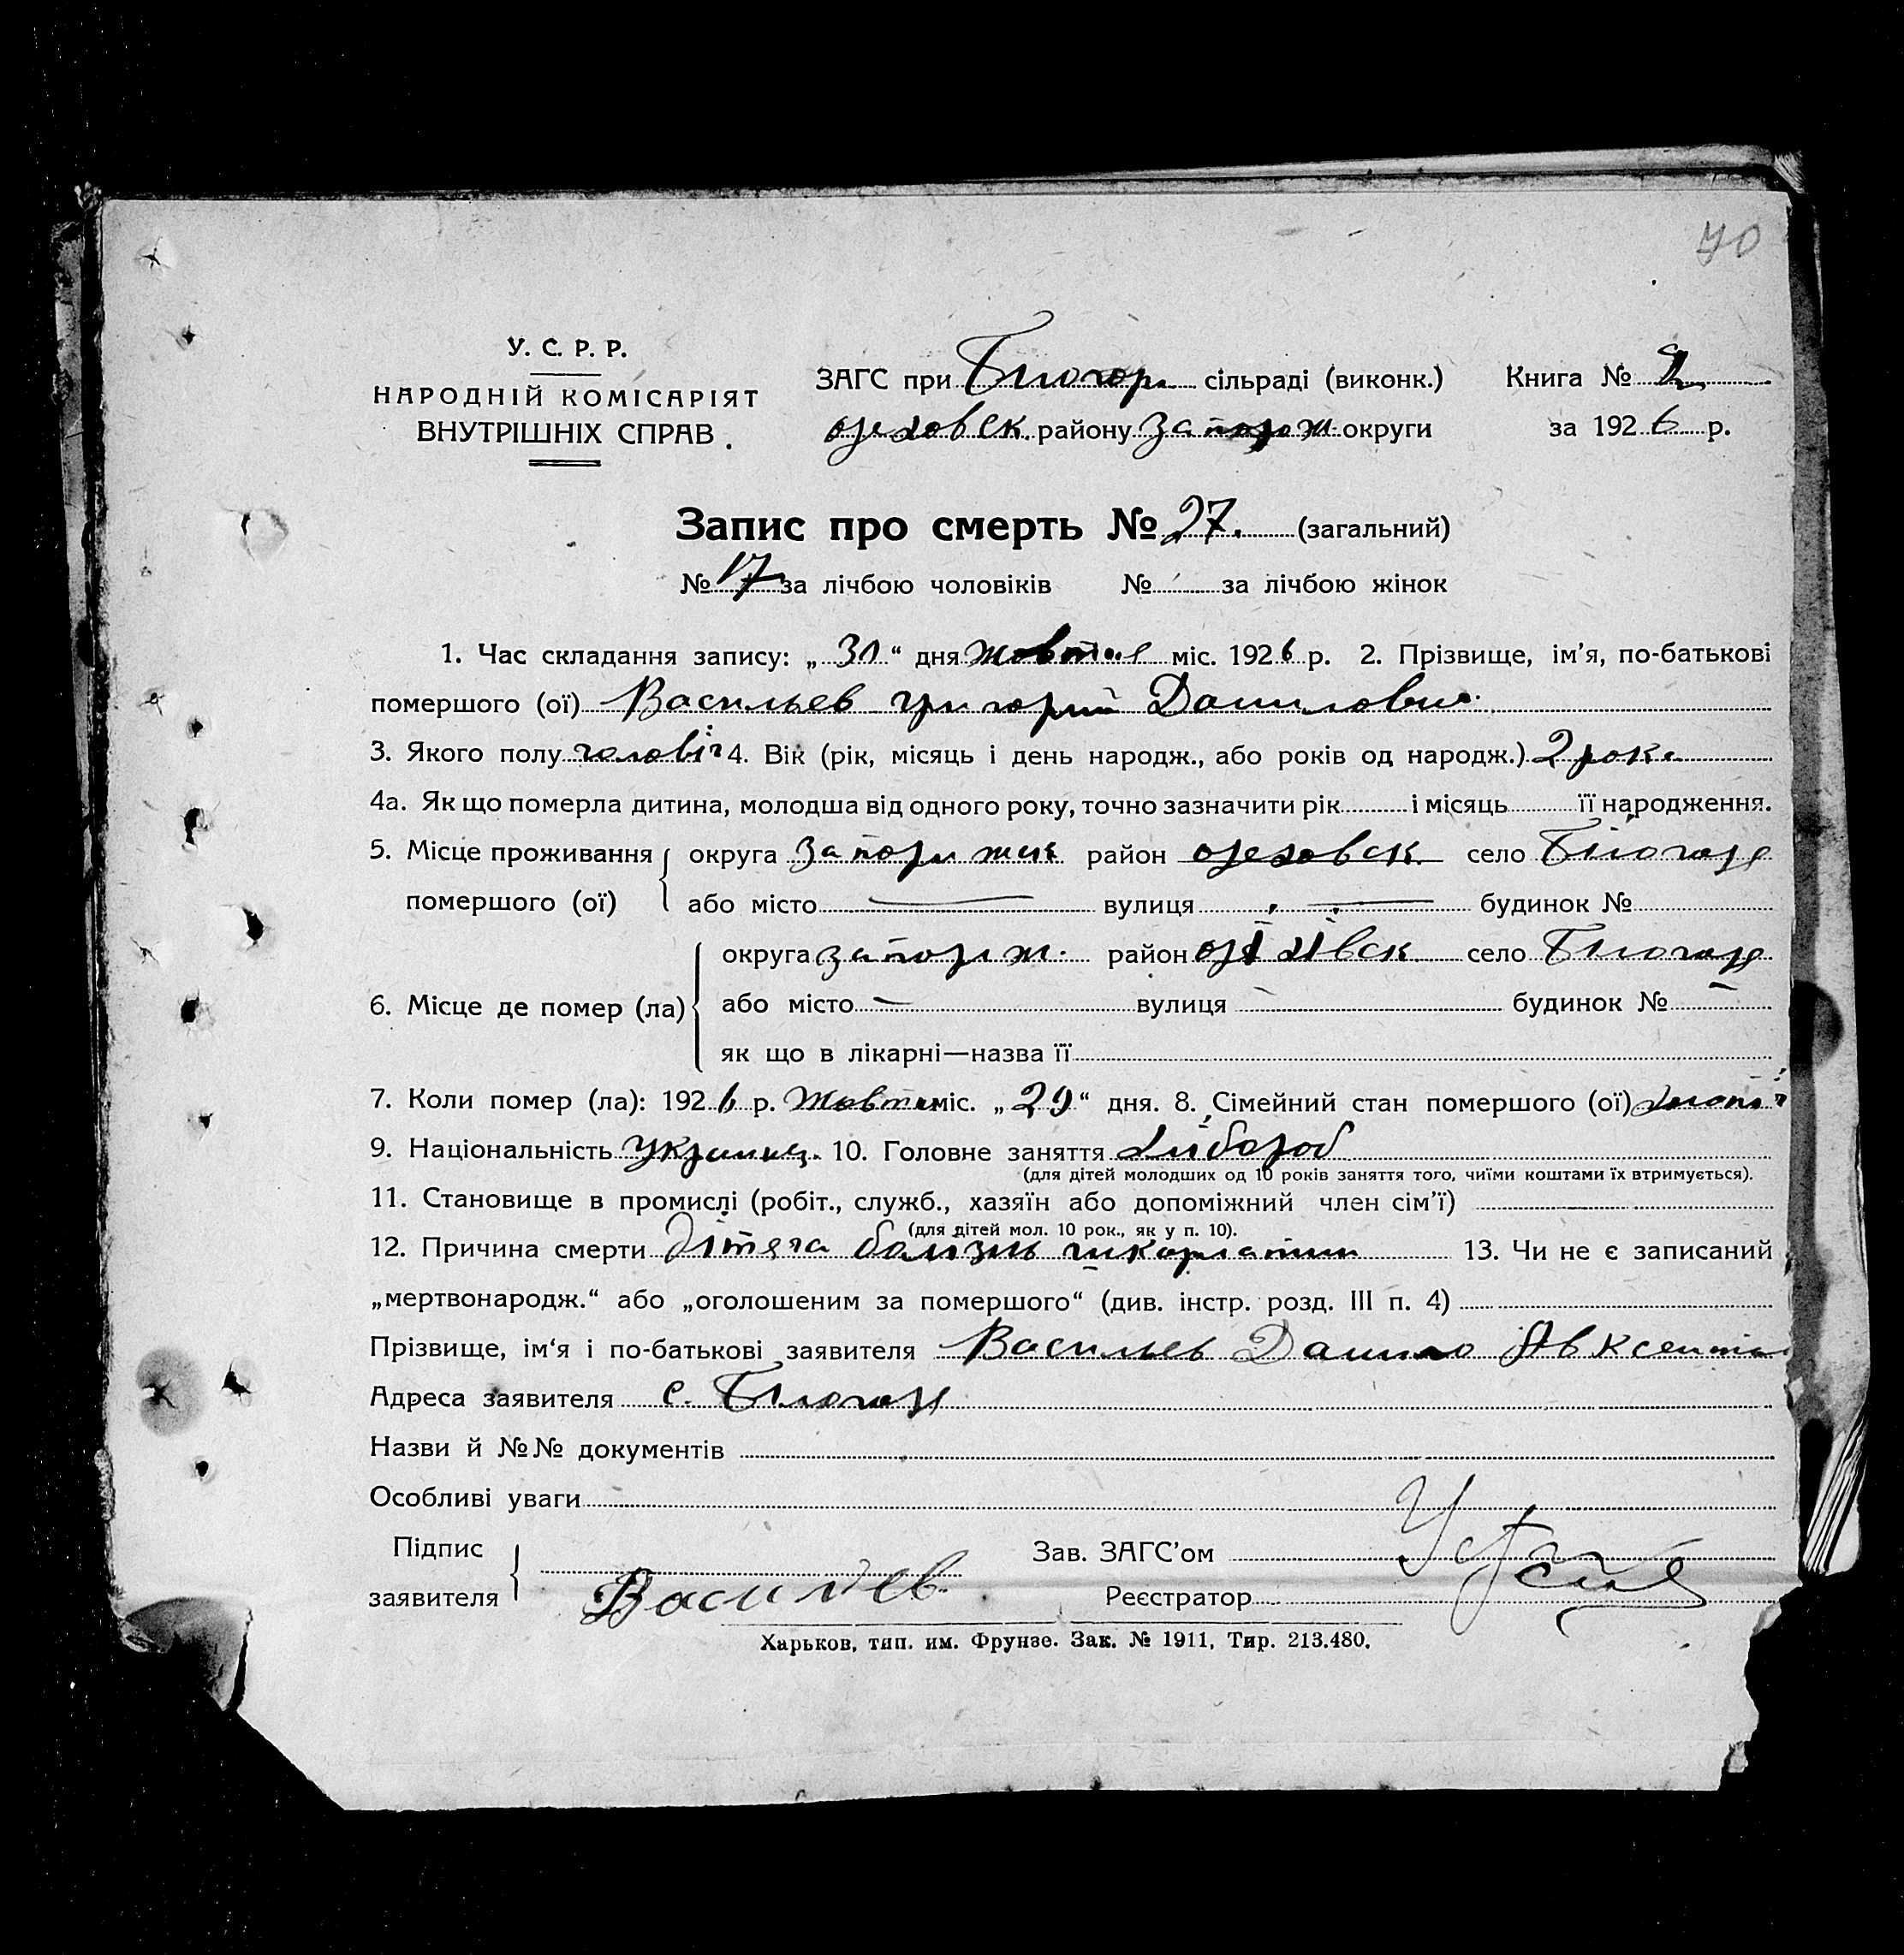 40
У. С. Р. Р.
НАРОДНІЙ КОМІСАРІЯТ
ВНУТРІШНІХ СПРАВ.
ЗАГС при Білогор. сільраді (виконк.) Книга № 2
ореховск. району Запорож округи за 1926 р.
Запис про смерть № 27. (загальний)
№ 17 за лічбою чоловіків № за лічбою жінок
1. Час складання запису: „31“ дня жовтня міс. 1926 р. 2. Прізвище, ім’я, по-батькові
помершого (ої) Васильев Григорий Данилович
3. Якого полу чоловіч 4. Вік (рік, місяць і день народж., або років од народж.) 2 роки
4а. Як що померла дитина, молодша від одного року, точно зазначити рік і місяць її народження.
5. Місце проживання помершого (ої) округа Запориж район ореховск. село Білогорє
або місто вулиця будинок №
6. Місце де помер (ла) округа Запориж. район оріхівск село Білогорє
або місто вулиця будинок №
як що в лікарні—назва її
7. Коли помер (ла): 1926 р. Жовтня міс. „29“ дня. 8. Сімейний стан помершого (ої)
9. Національність Українц. 10. Головне заняття Хлібороб
(для дітей молодших од 10 років заняття того, чиїми коштами їх втримується).
11. Становище в промислі (робіт., служб., хазяїн або допоміжний член сім’ї)
(для дітей мол. 10 рок., як у п. 10).
12. Причина смерти дітяча болізнь шкарлатин 13. Чи не є записаний
„мертвонародж.“ або „оголошеним за помершого“ (див. інстр. розд. III п. 4)
Прізвище, ім‘я і по-батькові заявителя Васильев Данило Авксенті
Адреса заявителя с. Білогорє
Назви й №№ документів
Особливі уваги
Підпис заявителя Васильев
Зав. ЗАГС’ом
Реєстратор
Харьков, тип. им. Фрунзе. Зак. № 1911, Тир. 213.480.